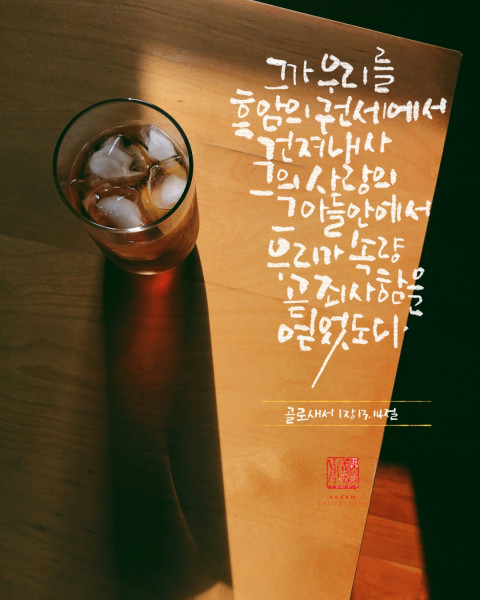 그가 우리를
흑암의 권세에서
건져내사
그의 사랑의
그 아들안에서
우리가 속량
곧 죄사함을
얻었도다
골로새서 1장13.14절